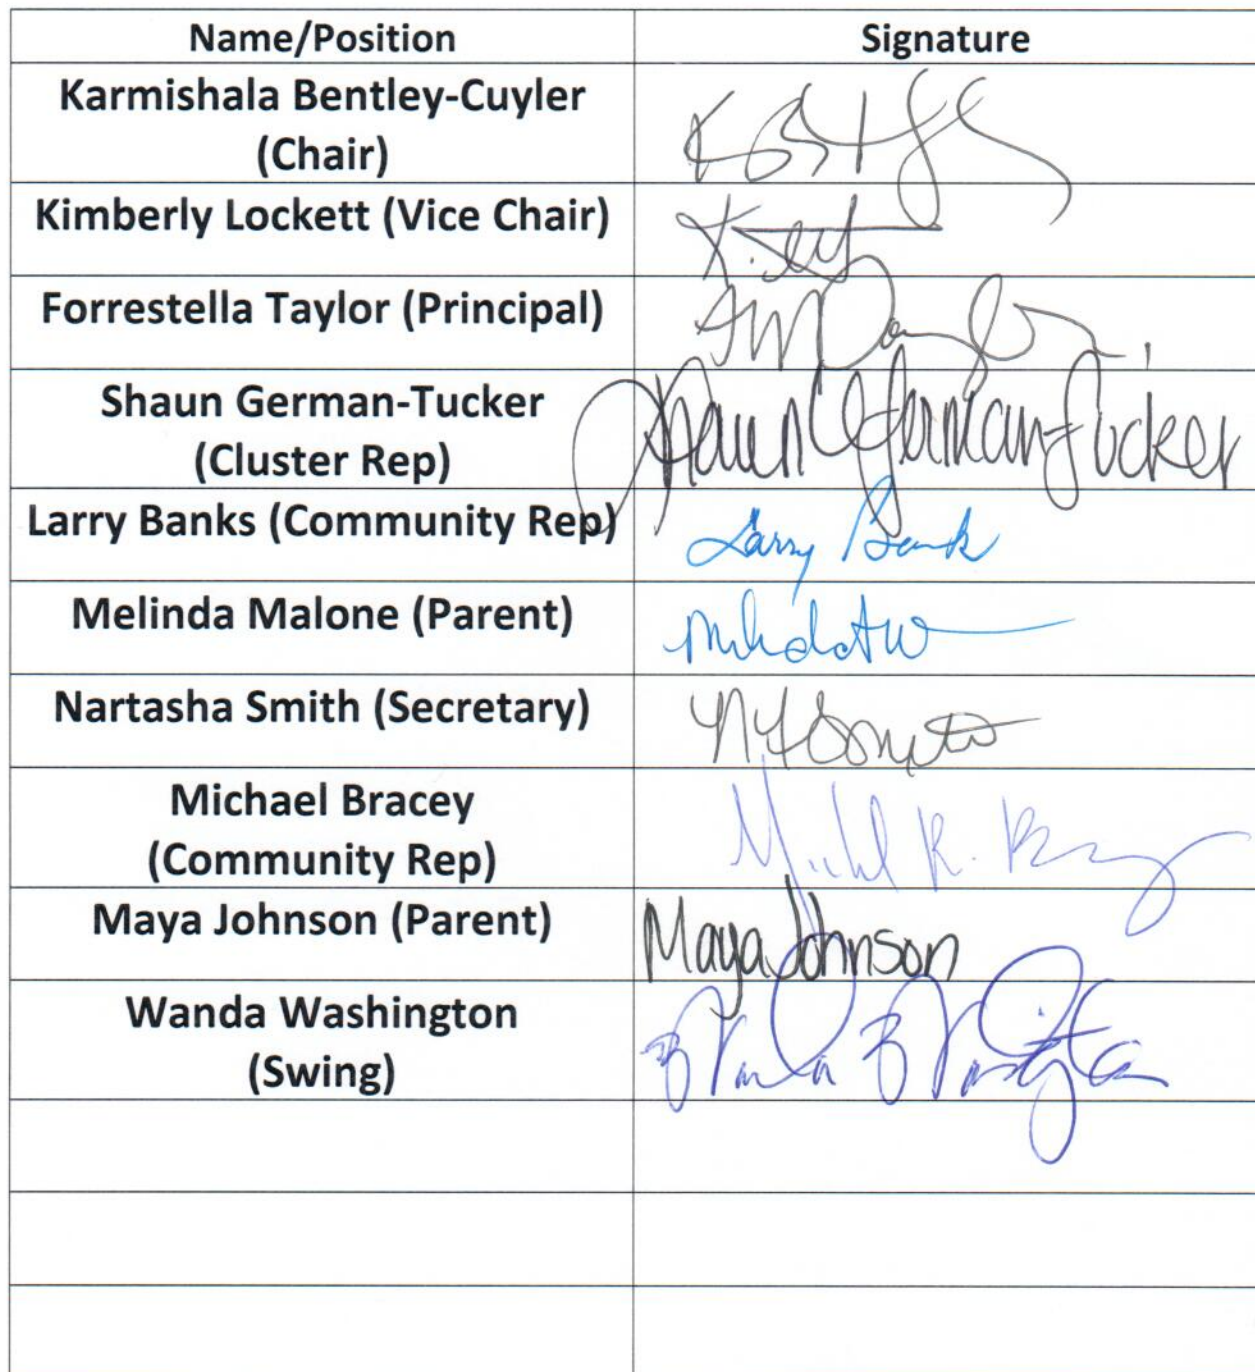 Name/Position Signature
Karmishala Bentley-Cuyler
(Chair)
Kimberly Lockett (Vice Chair)
Forrestella Taylor (Principal)
Shaun German-Tucker
(Cluster Rep)
Shaun German-Tucker
Larry Banks (Community Rep)
Larry Bank
Melinda Malone (Parent)
Nartasha Smith (Secretary)
Michael Bracey
(Community Rep)
Maya Johnson (Parent)
Maya Johnson
Wanda Washington
(Swing)